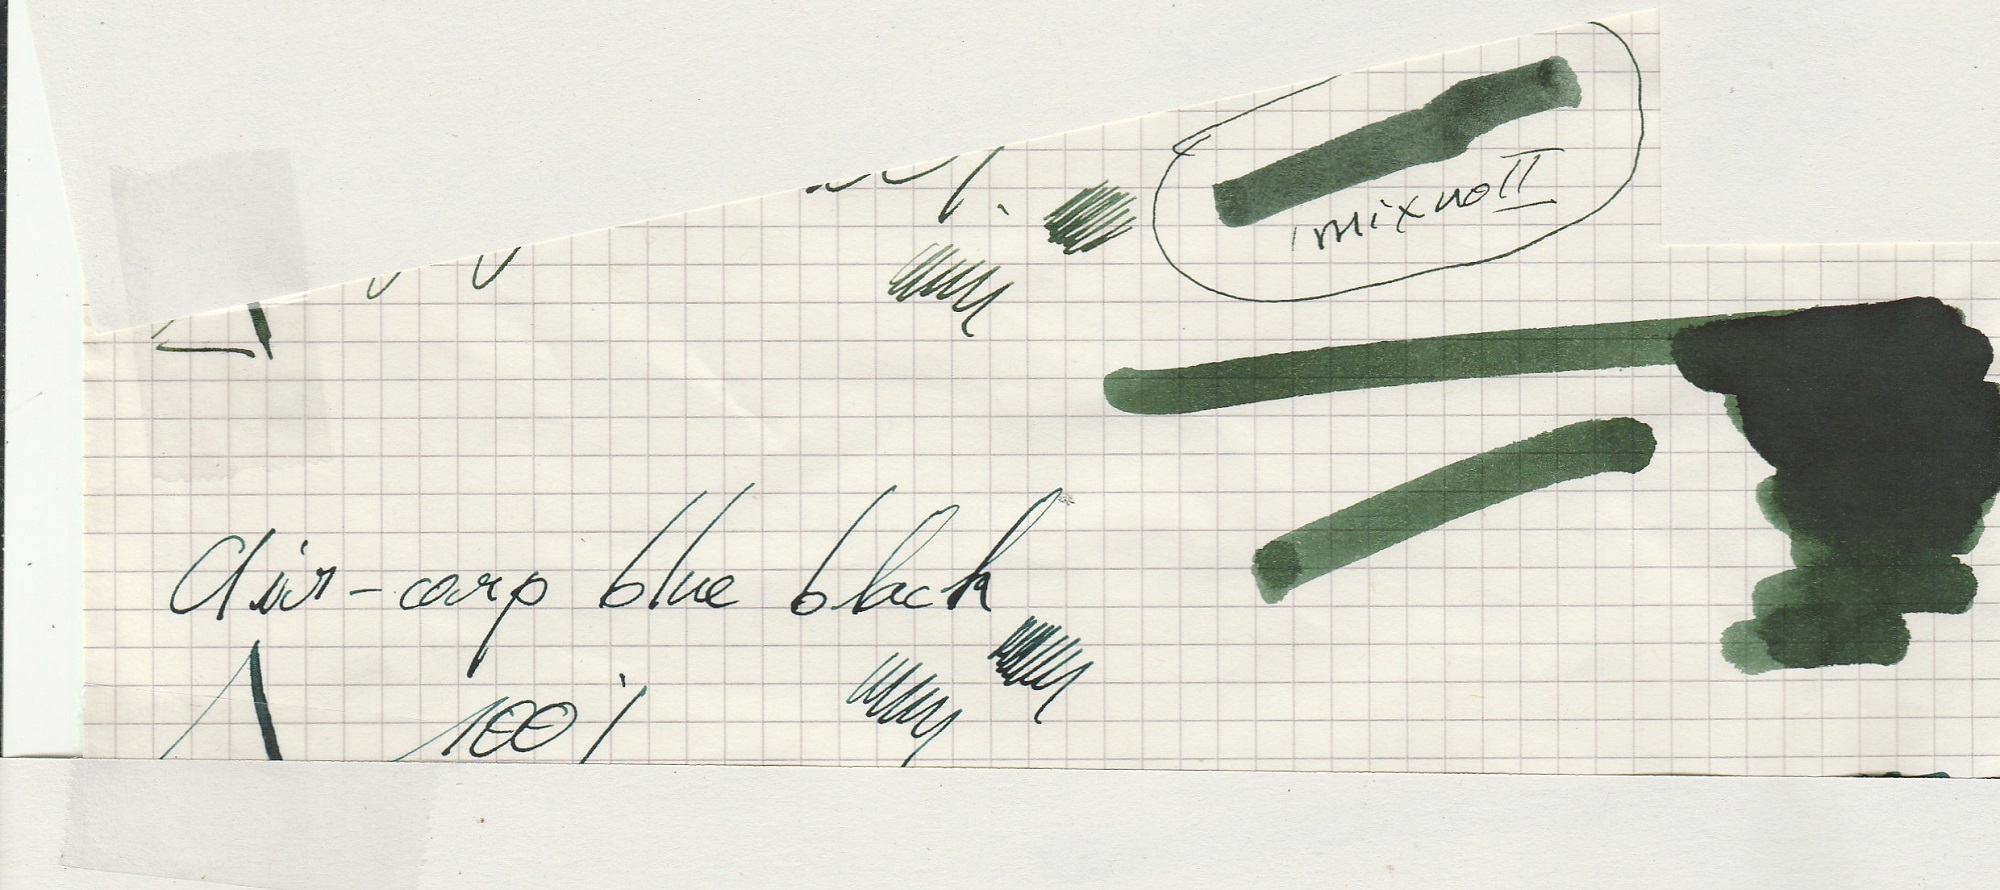 mix no II
Air-corp blue black
100%